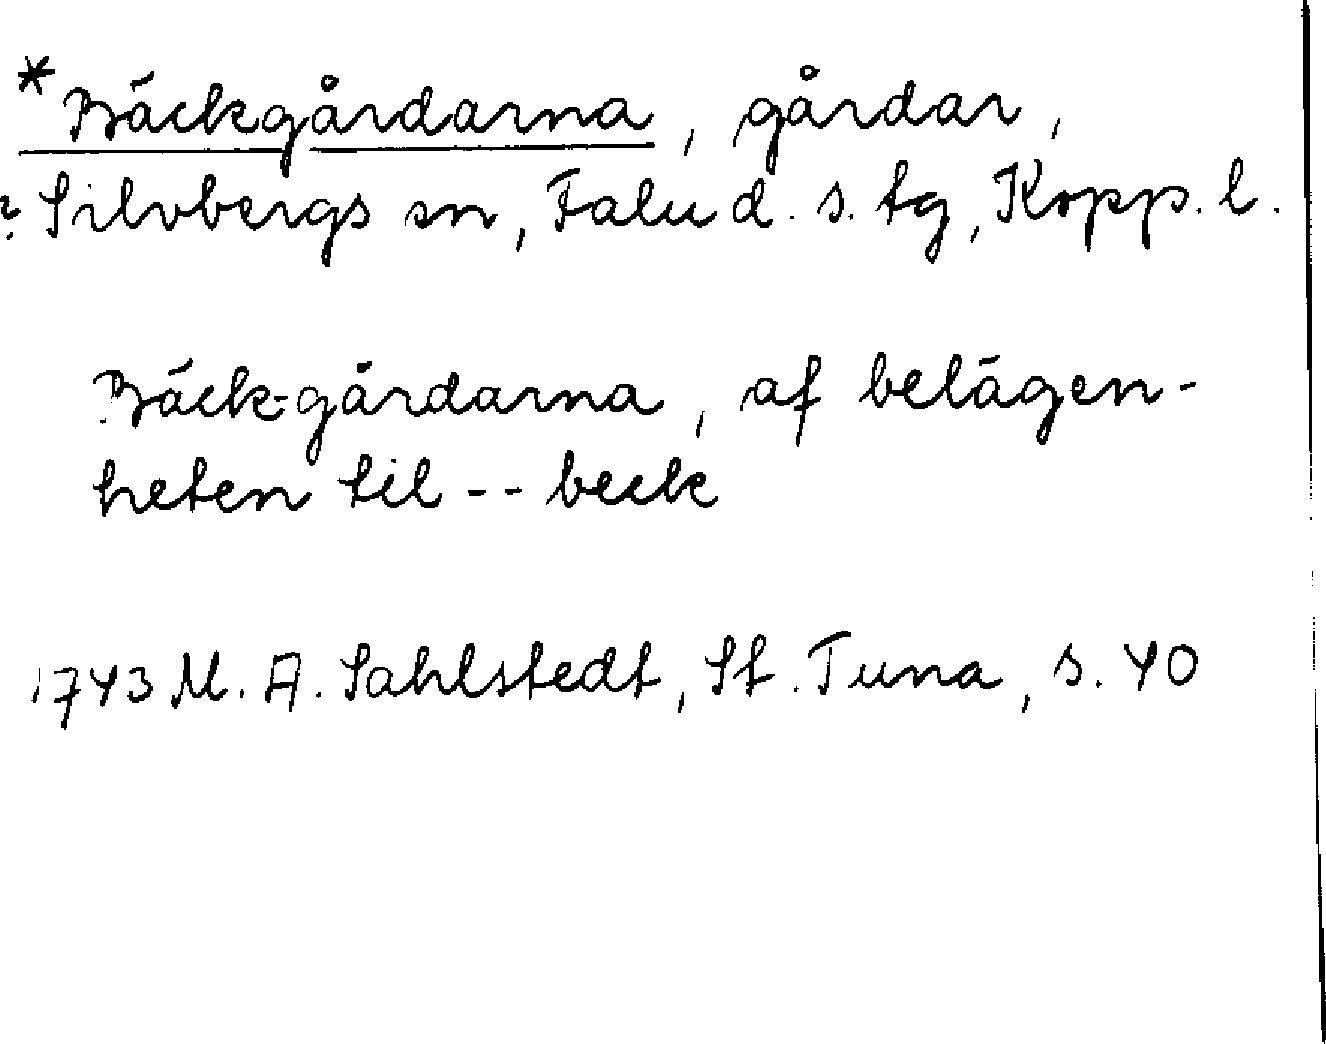 *Bäckgårdarna, gårdar,
? Silvbergs sn, Falu d. s. tg, Kopp. l.
Bäck-gårdarna, af belägen-
heten til -- beck
1743 M. A. Sahlstedt, St. Tuna, s. 40